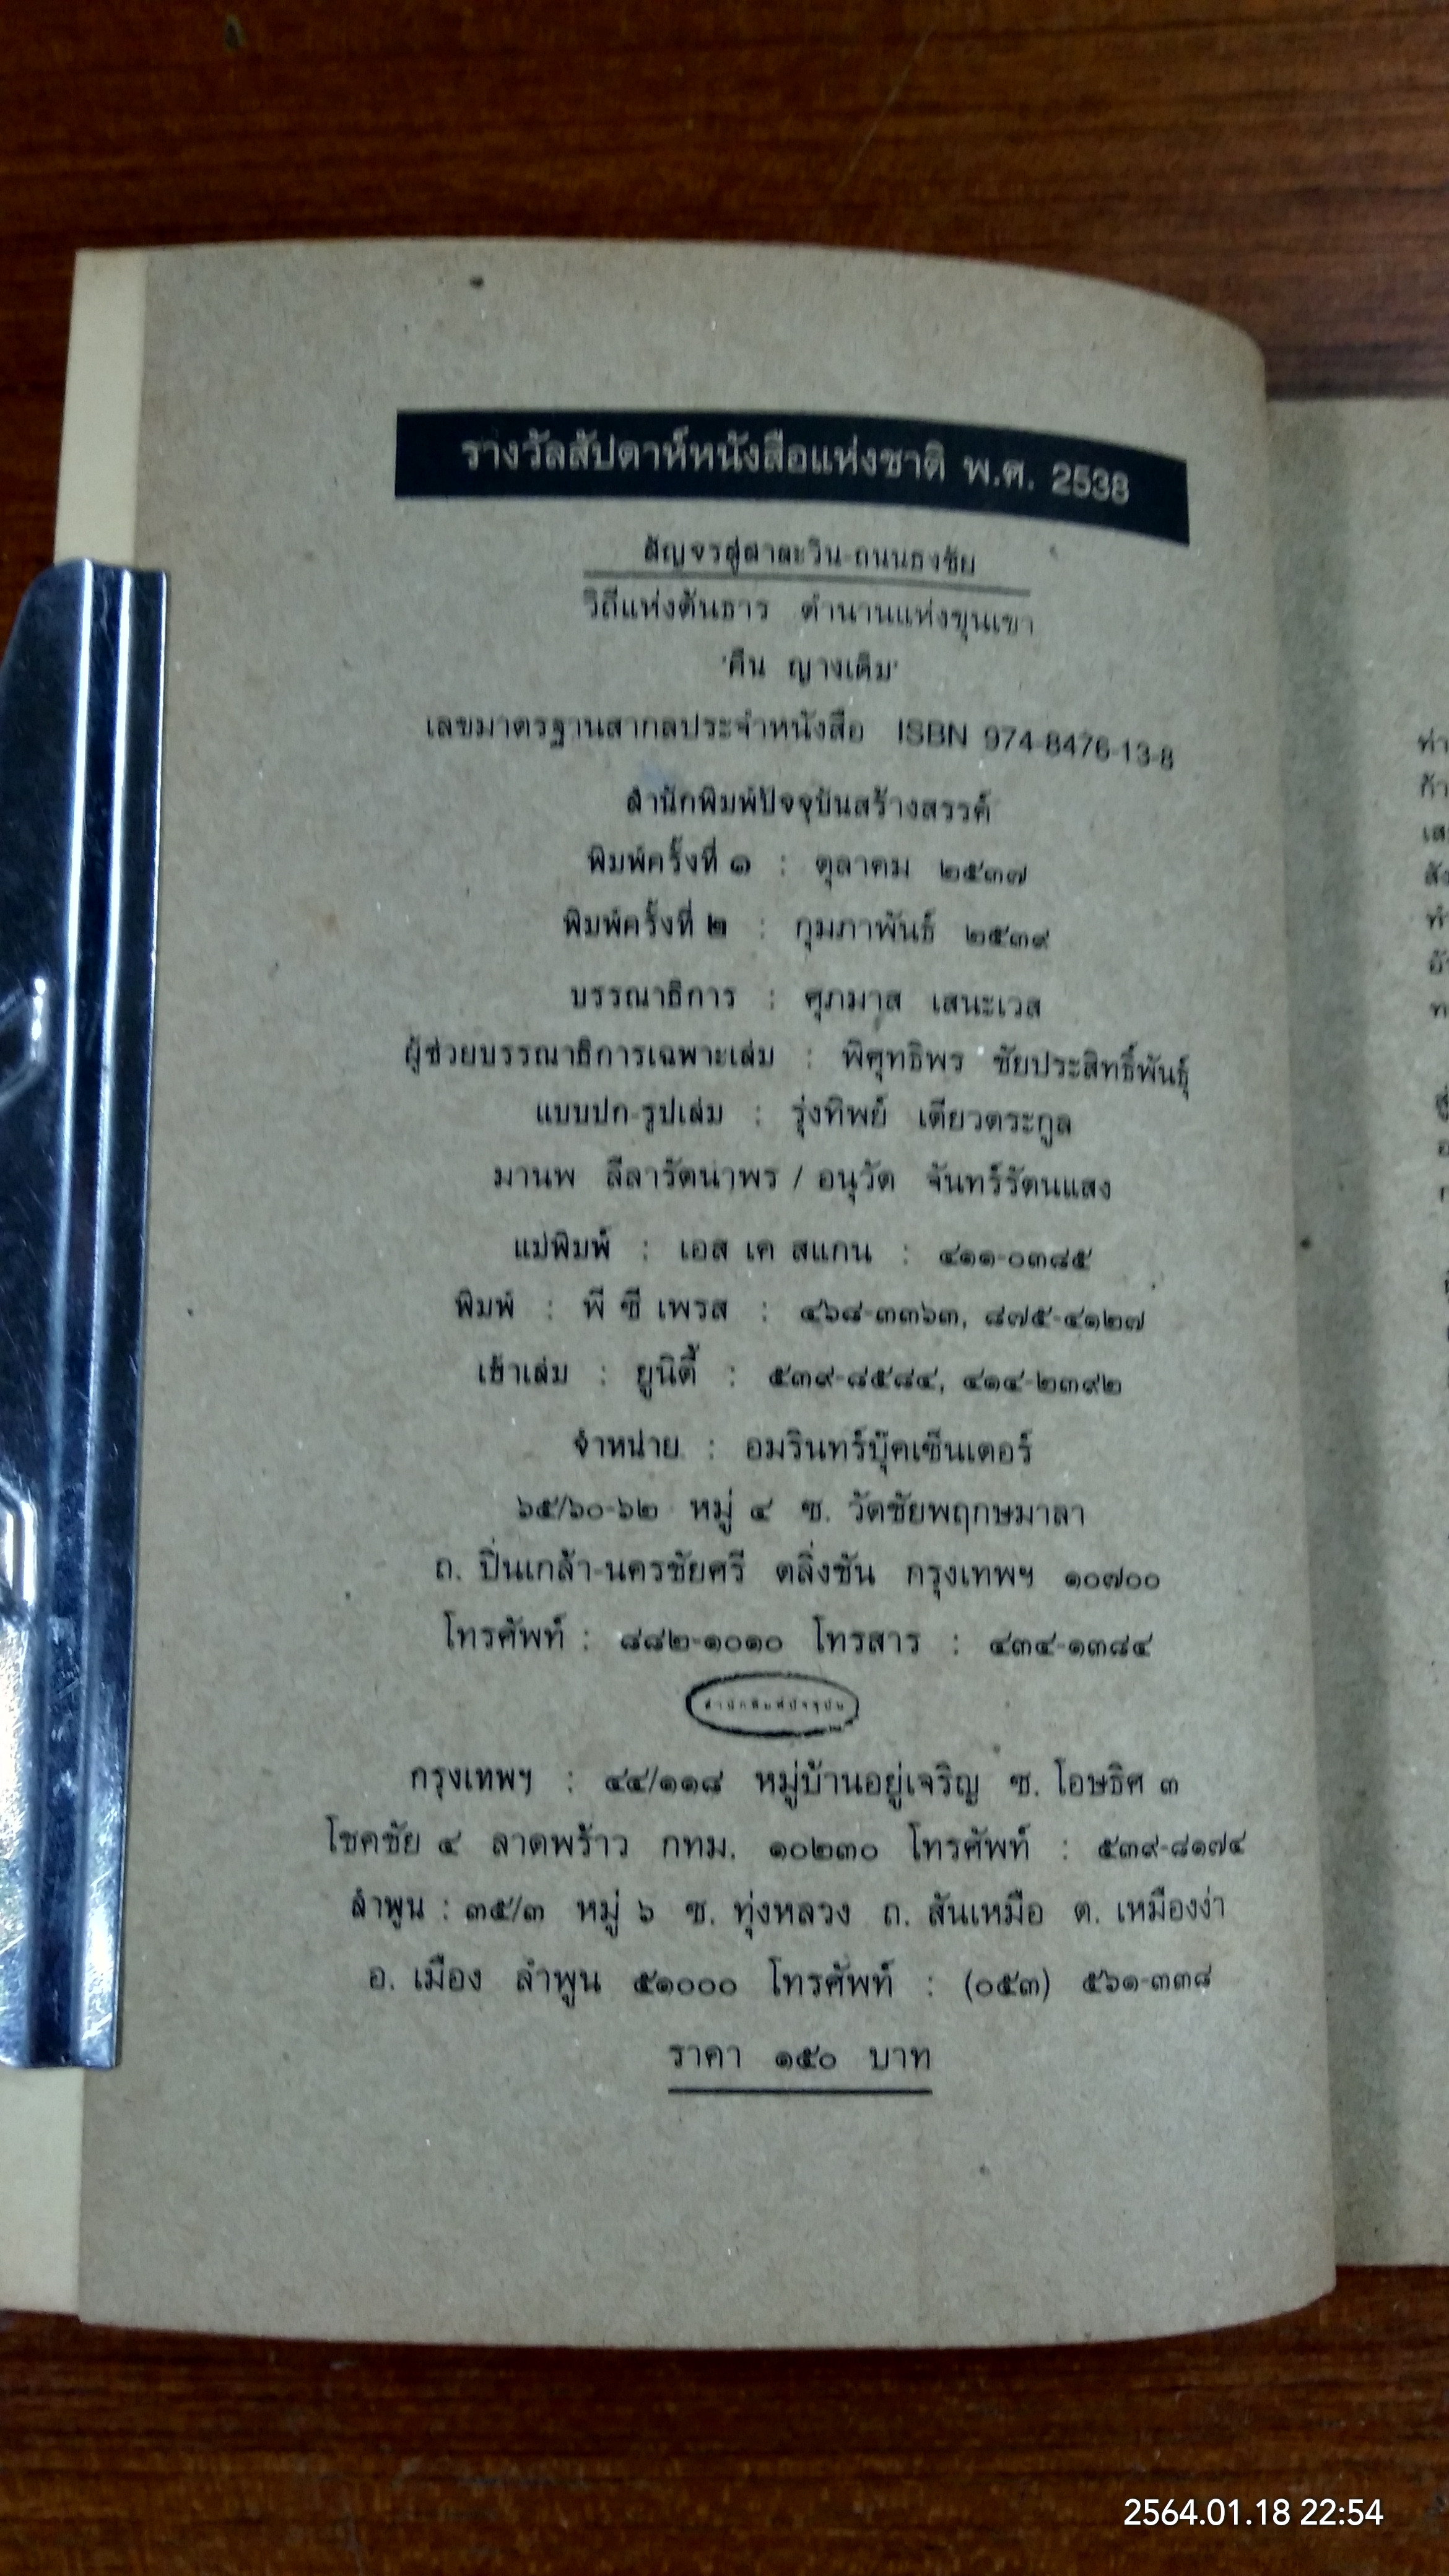 รางวัลสัปดาห์หนังสือแห่งชาติ พ.ศ. 2538
สัญจรสู่สาละวิน-ถนนธงชัย
วิถีแห่งต้นธาร ตำนานแห่งขุนเขา
'คีน ญางเดิม'
เลขมาตรฐานสากลประจำหนังสือ ISBN 974-8476-13-8
สำนักพิมพ์ปัจจุบันสร้างสรรค์
พิมพ์ครั้งที่ ๑ : ตุลาคม ๒๕๓๗
พิมพ์ครั้งที่ ๒ : กุมภาพันธ์ ๒๕๓๙
บรรณาธิการ : ศุภมาส เสนะเวส
ผู้ช่วยบรรณาธิการเฉพาะเล่ม : พิศุทธิพร ชัยประสิทธิ์พันธุ์
แบบปก-รูปเล่ม : รุ่งทิพย์ เตียวตระกูล
มานพ ลีลารัตนาพร / อนุวัต จันทร์รัตนแสง
แม่พิมพ์ : เอส เค สแกน : ๔๑๑-๐๓๘๕
พิมพ์ : พี ซี เพรส : ๔๖๘-๓๓๖๓, ๘๗๕-๔๑๒๗
เข้าเล่ม : ยูนิตี้ : ๕๓๙-๘๕๘๔, ๔๑๔-๒๓๙๒
จำหน่าย : อมรินทร์บุ๊คเซ็นเตอร์
๖๕/๖๐-๖๒ หมู่ ๔ ซ. วัดชัยพฤกษมาลา
ถ. ปิ่นเกล้า-นครชัยศรี ตลิ่งชัน กรุงเทพฯ ๑๐๗๐๐
โทรศัพท์ : ๘๘๒-๑๐๑๐ โทรสาร : ๔๓๔-๑๓๘๔
สำนักพิมพ์ปัจจุบัน
กรุงเทพฯ : ๔๔/๑๑๘ หมู่บ้านอยู่เจริญ ซ. โอษธิศ ๓
โชคชัย ๔ ลาดพร้าว กทม. ๑๐๒๓๐ โทรศัพท์ : ๕๓๙-๘๑๗๔
ลำพูน : ๓๕/๓ หมู่ ๖ ซ. ทุ่งหลวง ถ. สันเหมือ ต. เหมืองง่า
อ. เมือง ลำพูน ๕๑๐๐๐ โทรศัพท์ : (๐๕๓) ๕๖๑-๓๓๘
ราคา ๑๕๐ บาท
2564.01.18 22:54